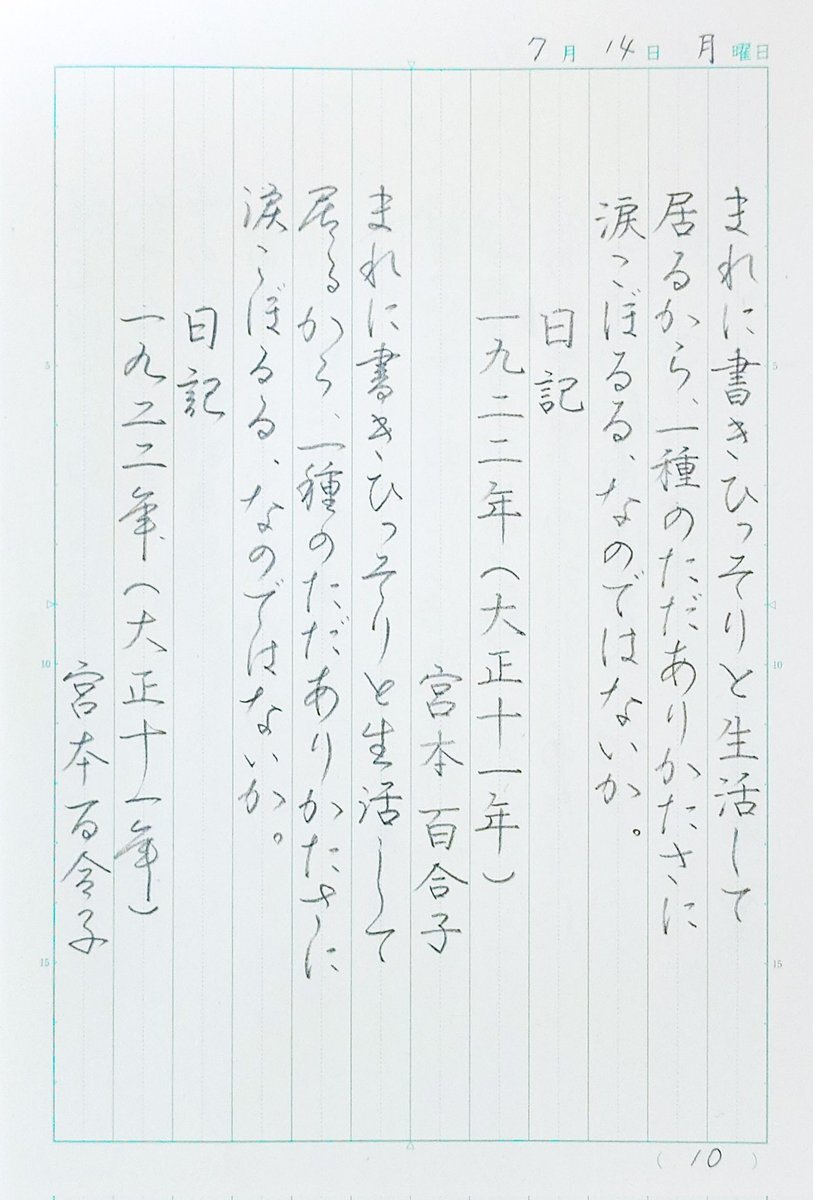 7月14日月曜日
まれに書きひっそりと生活して
居るから、一種のただありかたさに
涙こぼるる、なのではないか。
日記
一九二二年(大正十一年)
宮本百合子
まれに書きひっそりと生活して
居るから、一種のただありかたさに
涙こぼるる、なのではないか。
日記
一九二二年(大正十一年)
宮本百合子
5
10
15
5
10
15
(10)